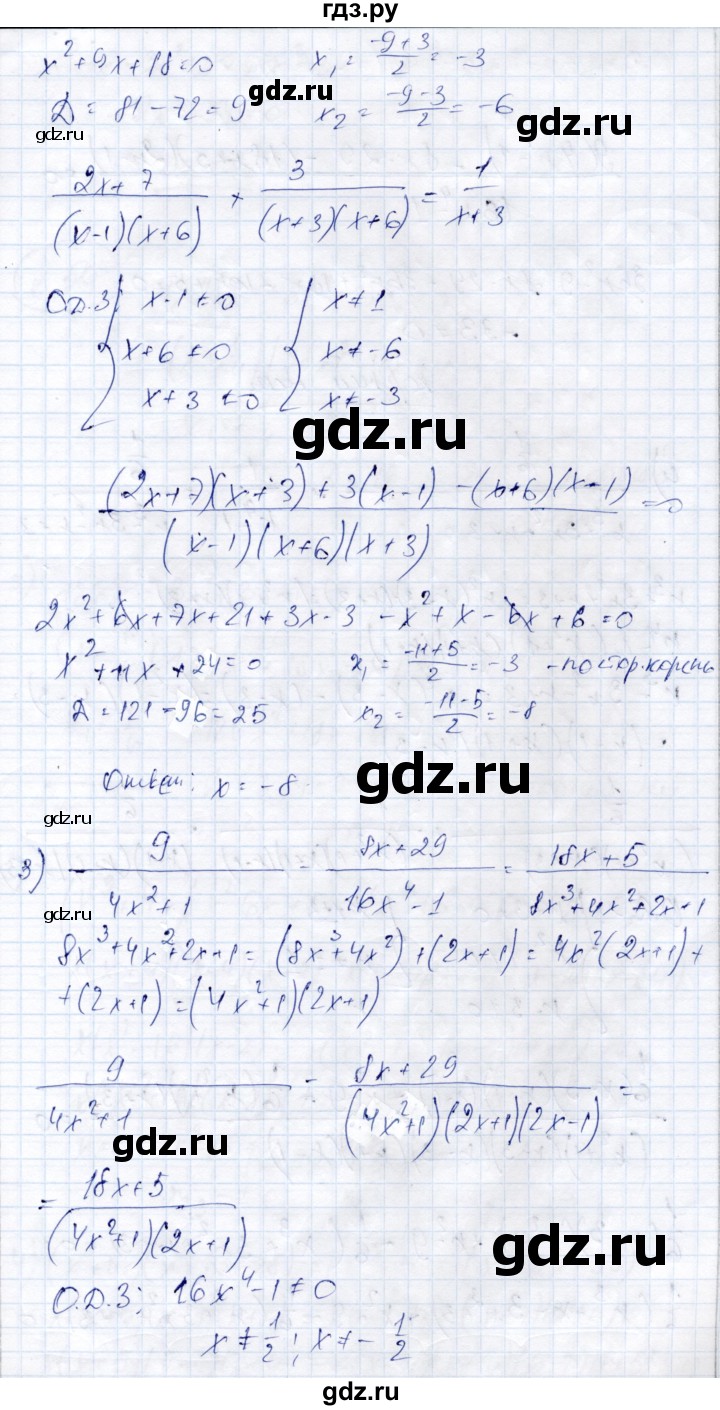 гдз.ру
x² + 9x + 18 = 0    x₁ = (-9+3)/2 = -3
gdz.ru
Д = 81 - 72 = 9    x₂ = (-9-3)/2 = -6
gdz.ru
gdz.ru
(2x+7)/((x-1)(x+6)) + 3/((x+3)(x+6)) = 1/(x+3)
О.Д.З: { x-1 ≠ 0    { x ≠ 1
x+6 ≠ 0    x ≠ -6
x+3 ≠ 0    x ≠ -3
gdz.ru
((2x+7)(x+3) + 3(x-1) - (x+6)(x-1))/((x-1)(x+6)(x+3)) = 0
2x² + 6x + 7x + 21 + 3x - 3 - x² + x - 6x + 6 = 0
gdz.ru
x² + 11x + 24 = 0    x₁ = (-11+5)/2 = -3 - постор.корень
Д = 121 - 96 = 25    x₂ = (-11-5)/2 = -8
Ответ: x = -8
gdz.ru
gdz.ru
3) 9/(4x²+1) - (8x+29)/(16x⁴-1) = (18x+5)/(8x³+4x²+2x+1)
gdz.ru
8x³+4x²+2x+1 = (8x³+4x²) + (2x+1) = 4x²(2x+1) +
gdz.ru
+ (2x+1) = (4x²+1)(2x+1)
9/(4x²+1) - (8x+29)/((4x²+1)(2x+1)(2x-1)) =
gdz.ru
= (18x+5)/((4x²+1)(2x+1))
gdz.ru
О.Д.З; 16x⁴-1 ≠ 0
x ≠ 1/2; x ≠ -1/2
gdz.ru